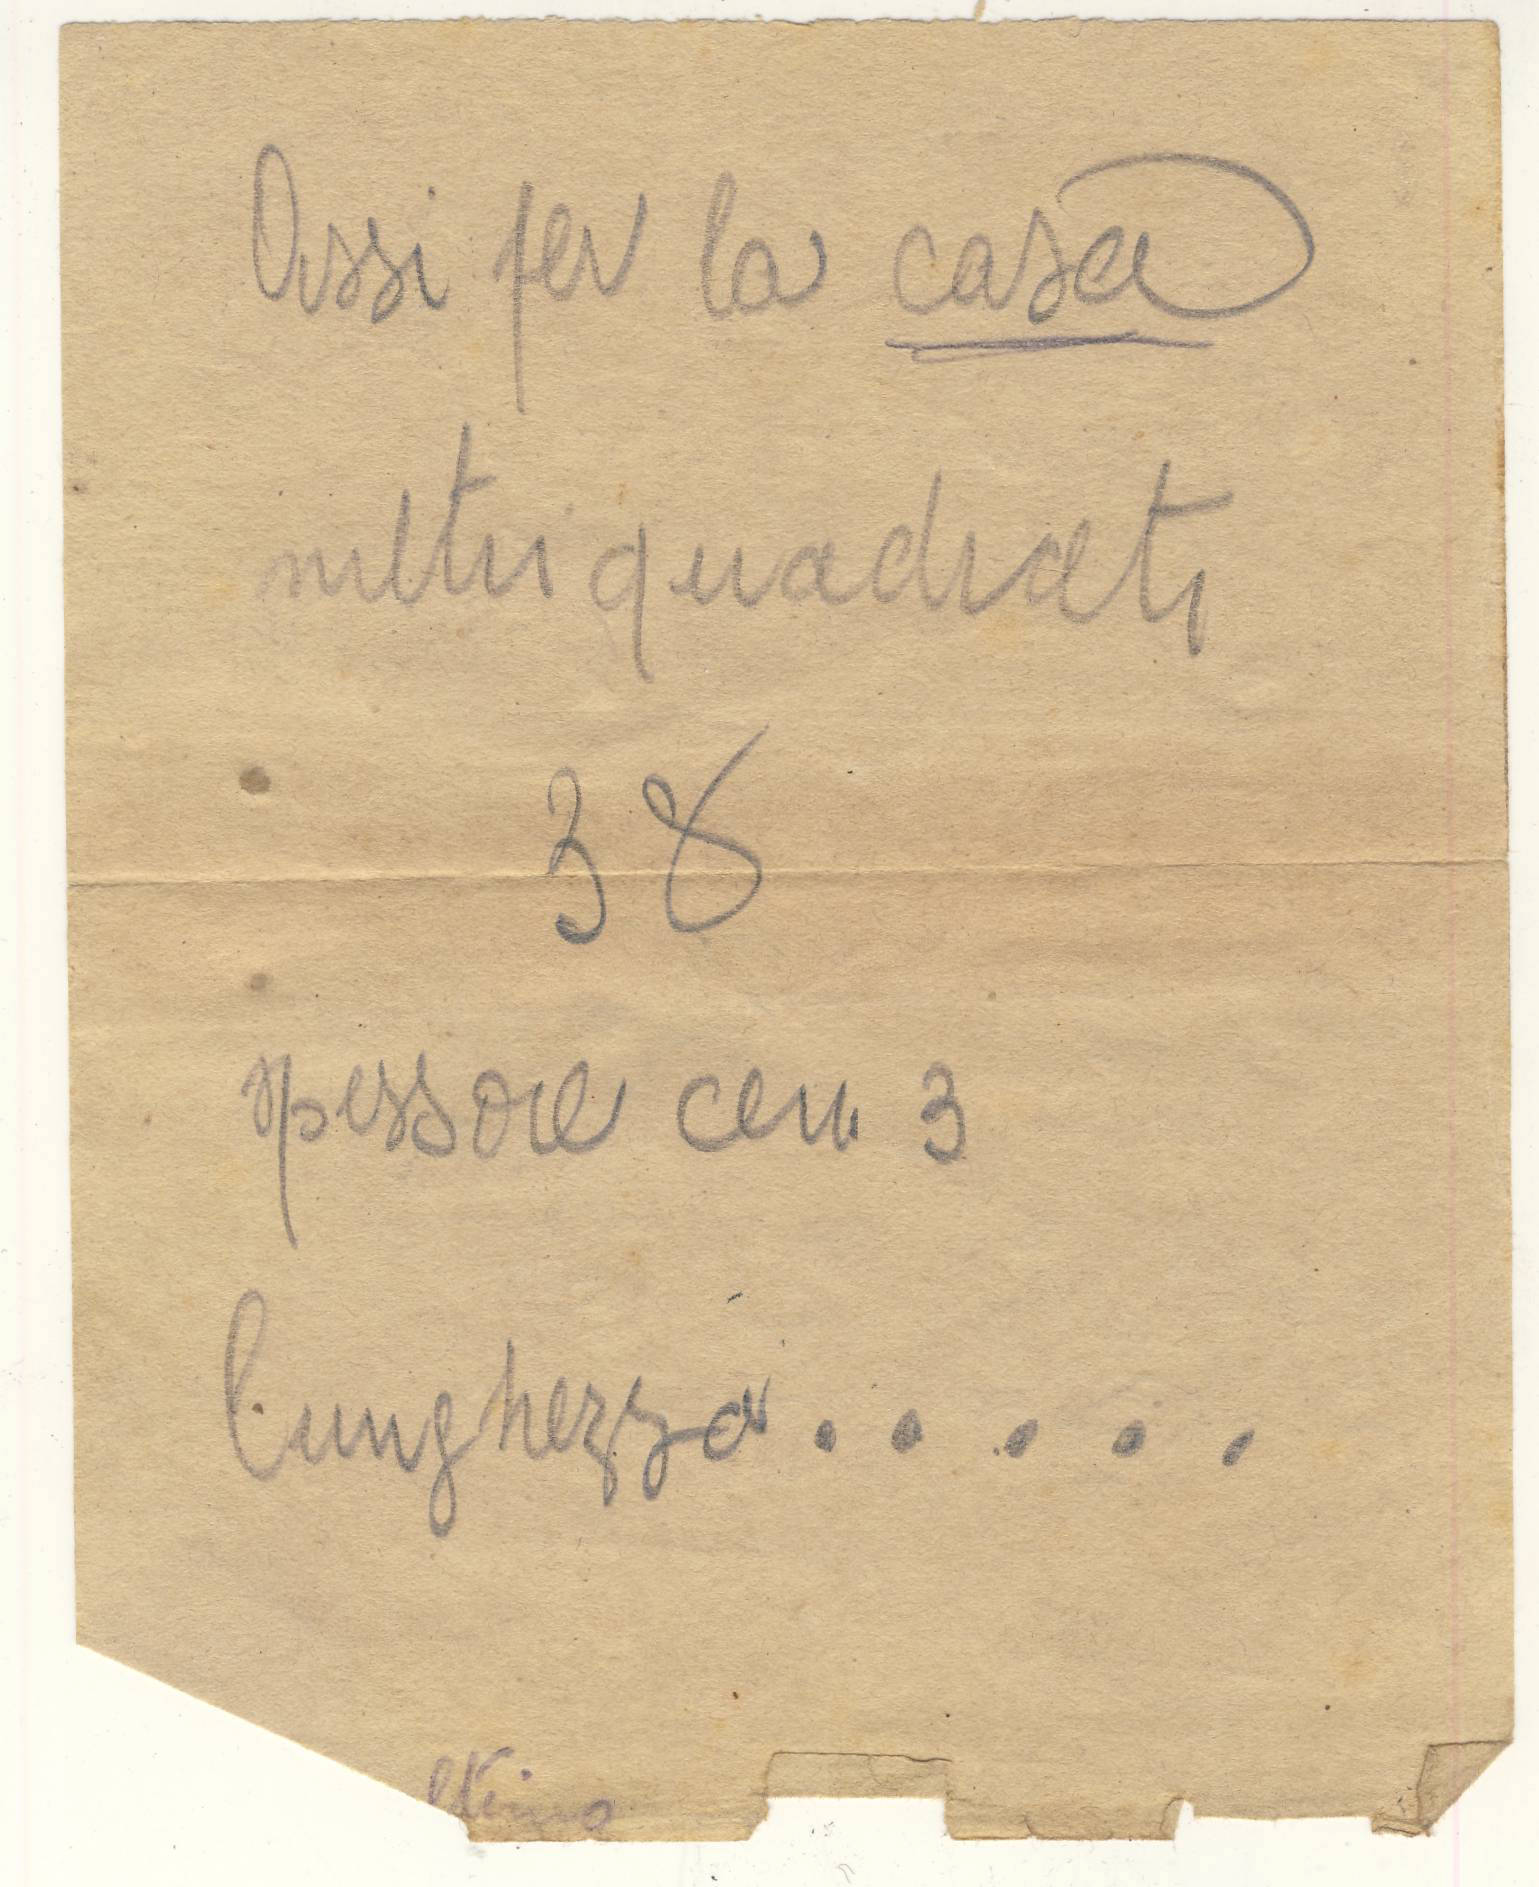 Assi per la casa
metri quadrati
38
spessore cm. 3
lunghezza.....